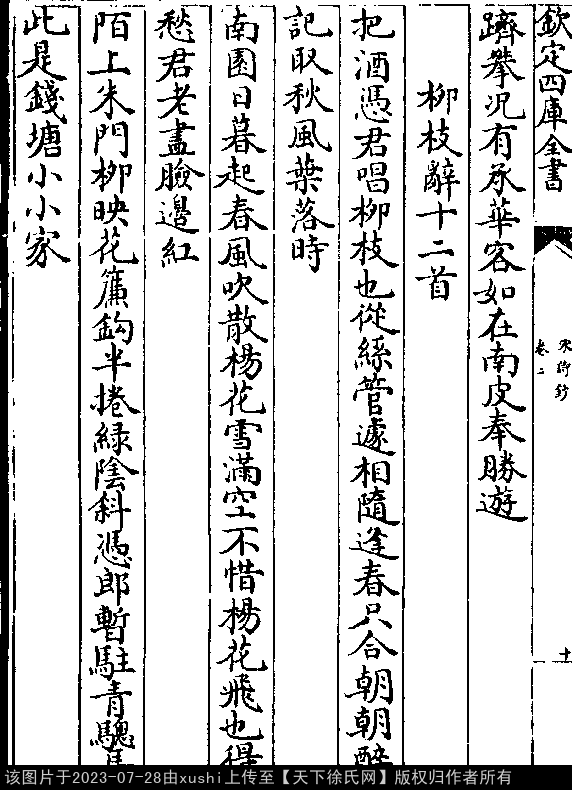 欽定四庫全書
宋詩鈔
卷二
十
躋攀况有承華客如在南皮奉勝遊
柳枝辭十二首
把酒憑君唱柳枝也從絲管遞相隨逢春只合朝朝醉
記取秋風葉落時
南園日暮起春風吹散楊花雪滿空不惜楊花飛也得
愁君老盡臉邊紅
陌上朱門柳映花簾鈎半捲緑陰斜憑郎暫駐青驄馬
此是錢塘小小家
该图片于2023-07-28由xushi上传至【天下徐氏网】版权归作者所有